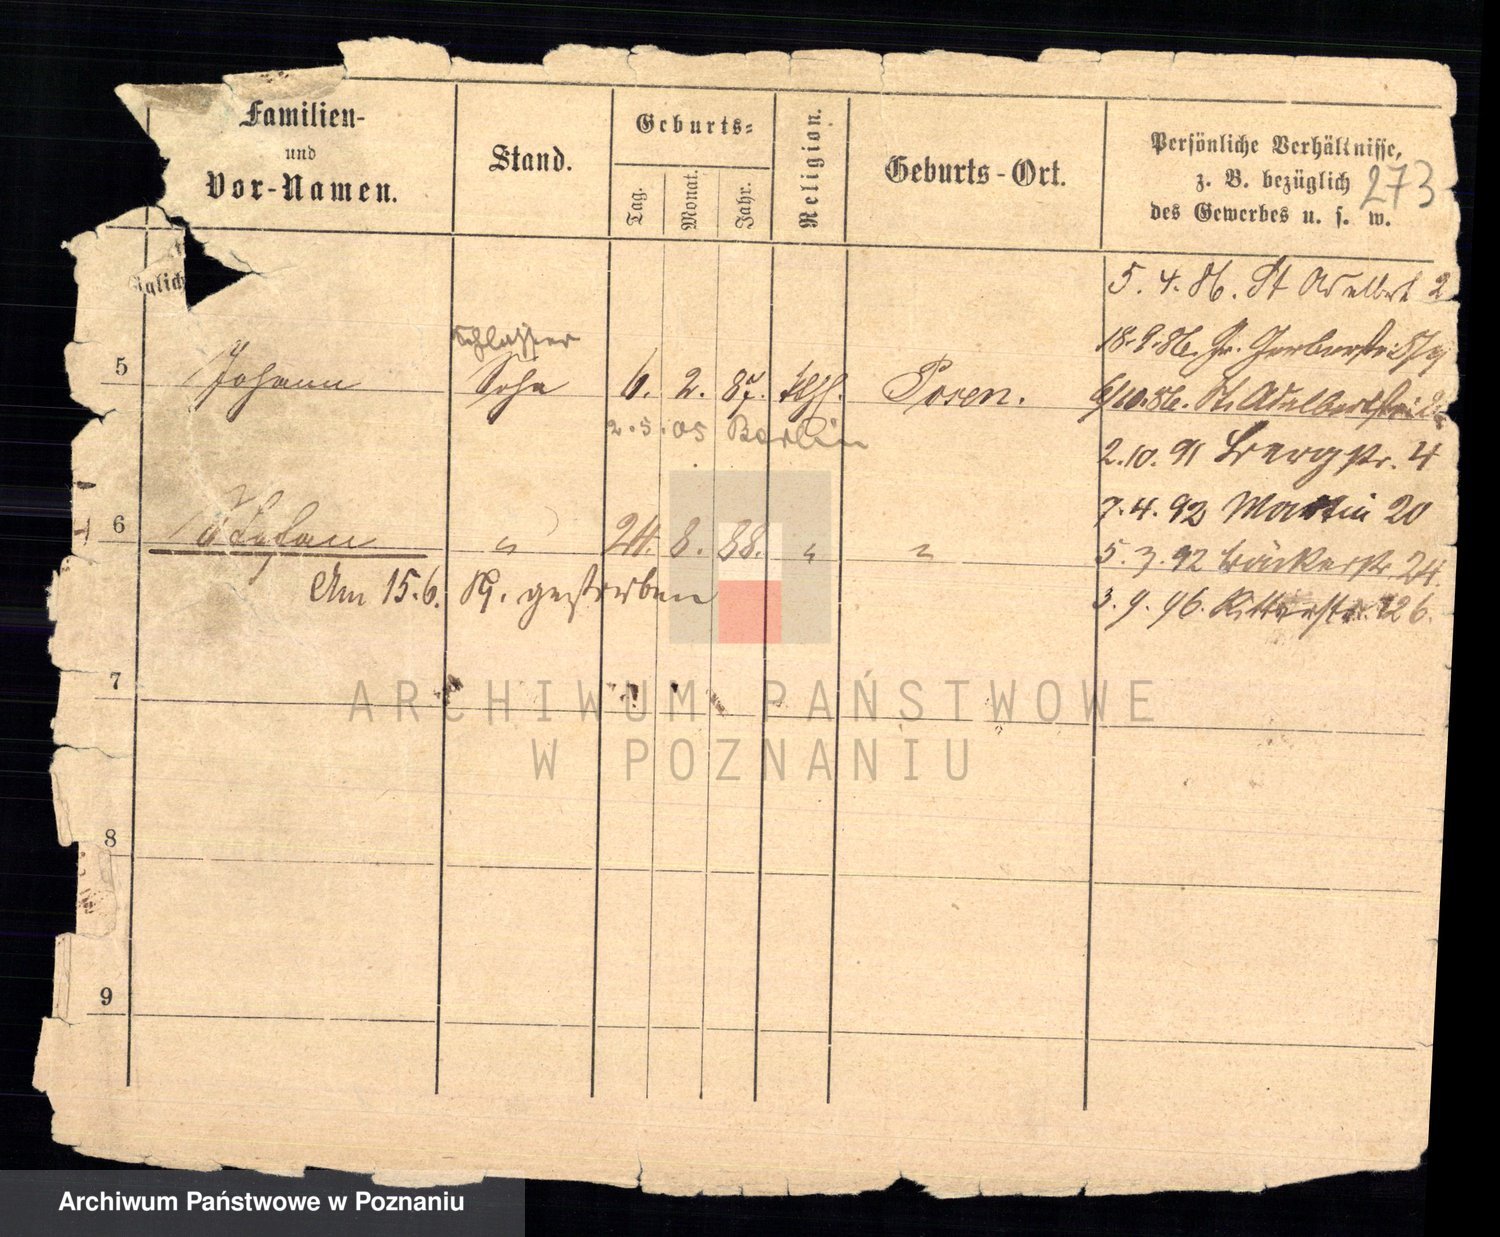 Familien-
und
Vor-Namen.
Stand.
Geburts-
Tag.
Monat.
Jahr.
Religion.
Geburts-Ort.
Persönliche Verhältnisse,
z. B. bezüglich
des Gewerbes u. s. w.
273
5. 4. 86. St Adalbert 2
18. 9. 86. Gr. Gerberstr.
Schlosser
5 Johann Sohn 6. 2. 87. kath. Posen.
6/10. 86. St. Adalbertstr. 2
2. 5. 05 Berlin
2. 10. 91 Bergstr. 4
7. 4. 92 Martin 20
6 Stefan " 24. 8. 88. " "
5. 3. 92 Bäckerstr. 24.
Am 15. 6. 89. gestorben
3. 9. 96. Ritterstr. 26.
7
8
9
ARCHIWUM PAŃSTWOWE
W POZNANIU
Archiwum Państwowe w Poznaniu